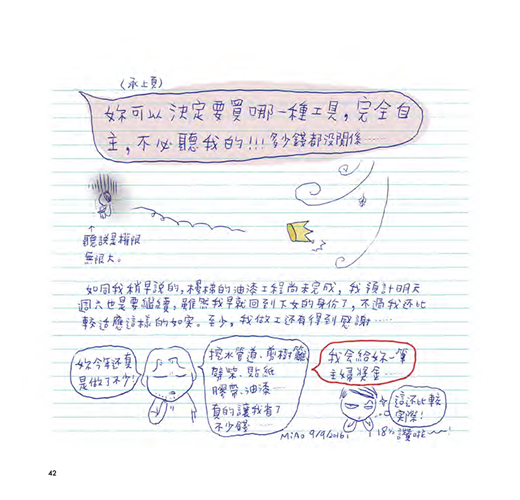 (承上頁)
妳可以決定要買哪一種工具,完全自
主,不必聽我的!!!多少錢都沒關係……
聽說是權限
無限大。
如同我稍早說的,樓梯的油漆工程尚未完成,我預計明天
週六也是要繼續,雖然我早就回到下女的身份了,不過我還比
較適應這樣的如實。至少,我做工還有得到感謝……
妳今年還真
是做了不少!
挖水管道、剪樹籬
劈柴、貼紙
膠帶、油漆……
真的讓我省了
不少錢……
我會給妳一筆
主婦獎金……
這還比較
實際!
Miao 9/9/2016
42